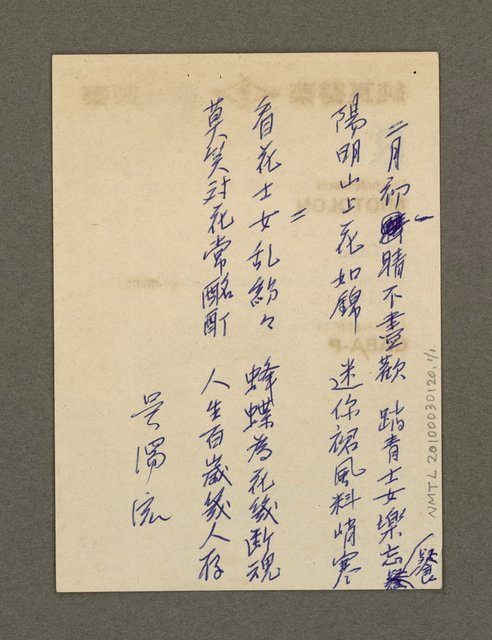 一
二月初晴不盡歡 踏青士女樂忘餐
陽明山上花如錦 迷你裙風料峭寒
二
看花士女乱紛々 蜂蝶為花幾断魂
莫笑対花常酩酊 人生百歲幾人存
吳濁流
NMTL20100030120.1/1